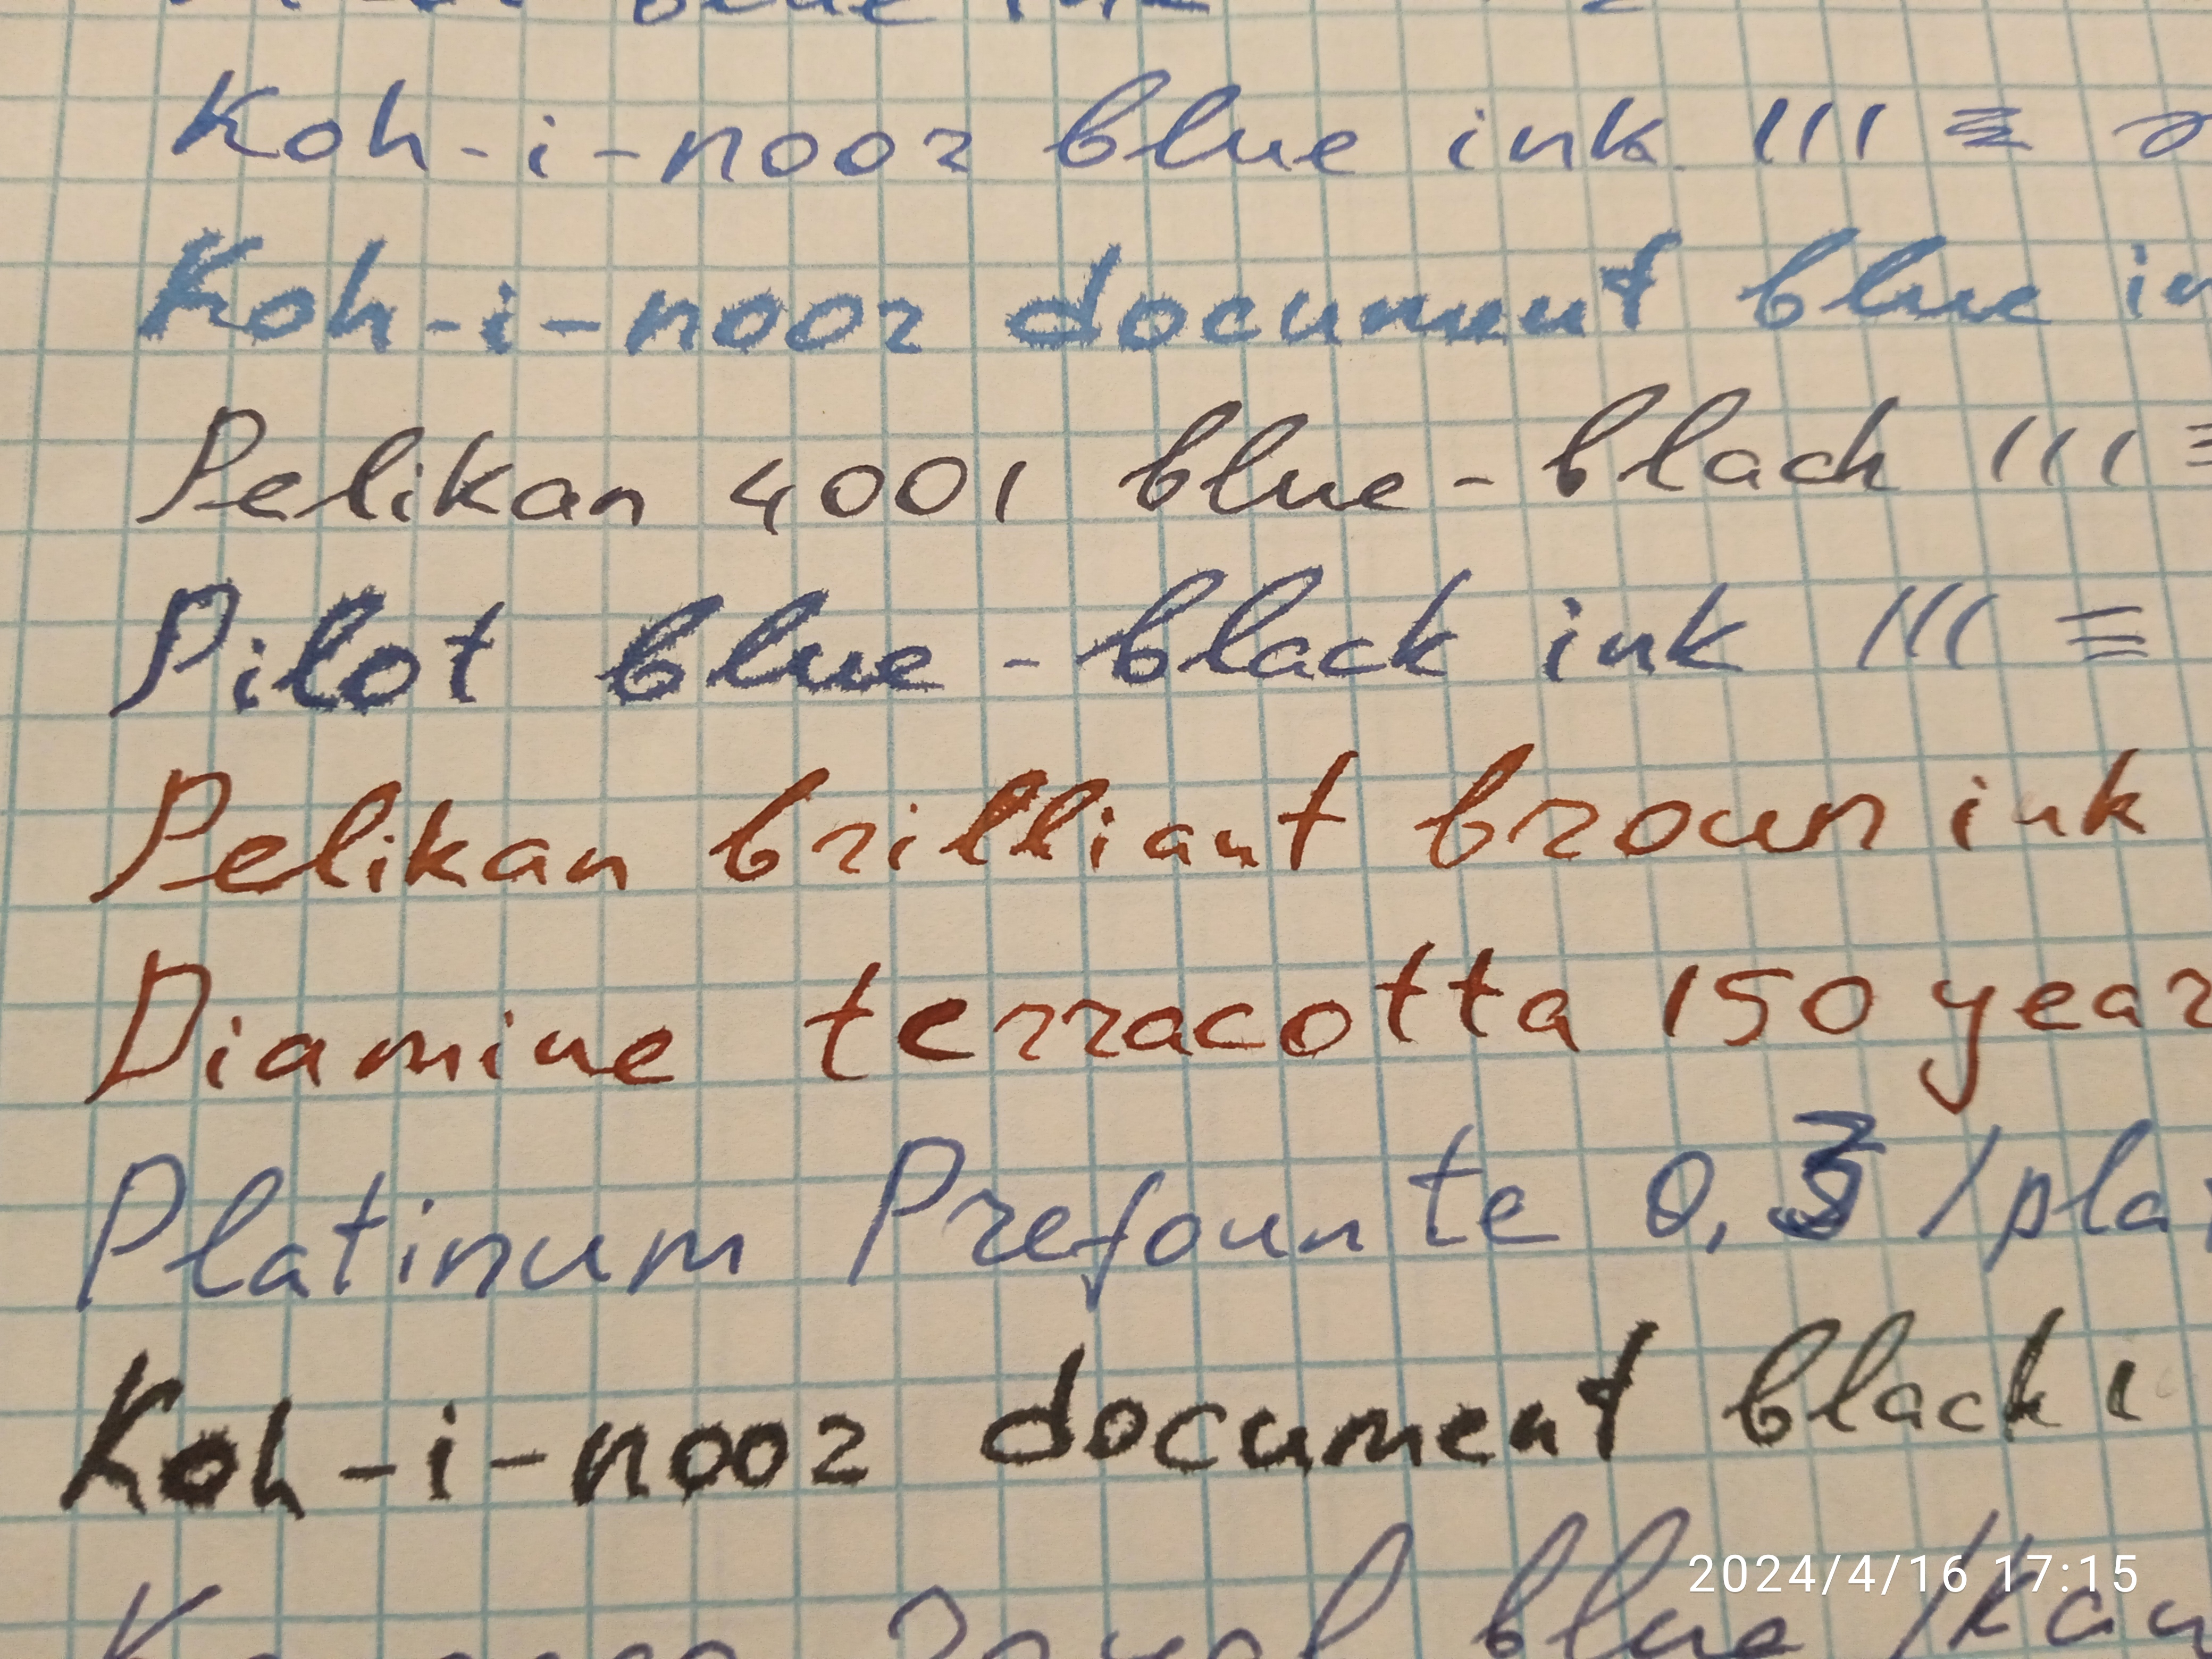 blue ink
Koh-i-noor blue ink
Koh-i-noor document blue in
Pelikan 4001 blue-black
Pilot blue-black ink
Pelikan brilliant brown ink
Diamine terracotta 150 year
Platinum Prefounte 0,3 /pla
Koh-i-noor document black i
royal blue /Kaw
2024/4/16 17:15